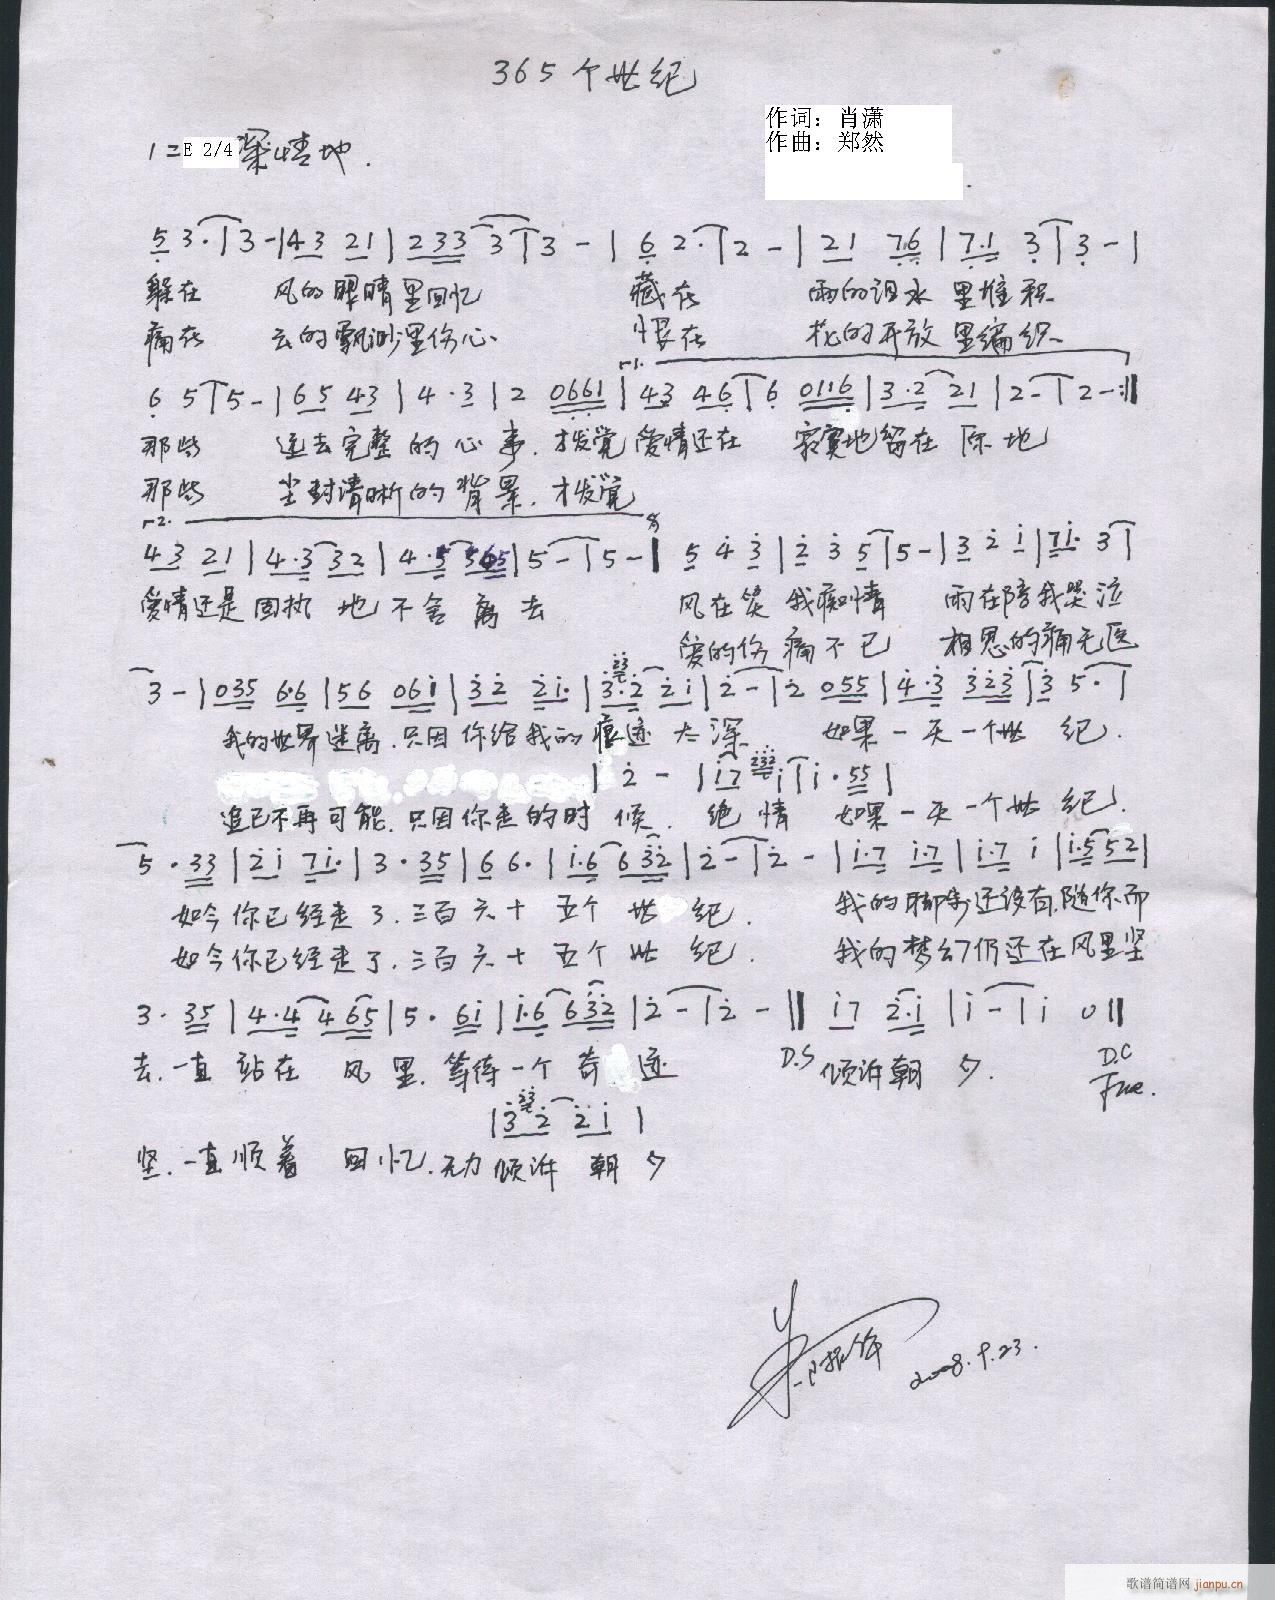 365个世纪
作词：肖潇
作曲：郑然
1=E 2/4 深情地.
5 3·|3-|43 21|233 3|3-|6 2·|2-|21 76|7·1 3|3-|
躲在 风的眼睛里回忆 藏在 雨的泪水里堆积
痛在 云的飘渺里伤心、 恨在 花的开放里编织、
1.
6 5|5-|65 43|4·3|2 0661|43 46|6 0116|3·2 21|2-|2-:||
那些 逝去完整的心事.才发觉爱情还在 寂寞地留在原地
那些 尘封清晰的背景.才发觉
2.
43 21|4·3 32|4·5 565|5-|5-|| 5 4 3|2 3 5|5-|3 2 i|7i· 3|
爱情还是固执地不舍离去 风在笑我痴情 雨在陪我哭泣
爱的伤痛不已 相思的痛无医
3-|035 6·6|56 06i|32 2i·|3·2 2i|2-|2 055|4·3 323|3 5·|
我的世界迷离.只因你给我的痕迹太深 如果一天一个世纪.
|2-|i7 i|i·55|
追已不再可能.只因你走的时候.绝情 如果一天一个世纪.
5·33|2i 7i·|3·35|6 6·|i·6 632|2-|2-|i·7 i·7|i·7 i|i·5 52|
如今你已经走了.三百六十五个世纪. 我的脚步还没有随你而
如今你已经走了.三百六十五个世纪. 我的梦幻仍还在风里坚
3·35|4·4 465|5·6i|i·6 632|2-|2-|| i7 2·i|i-|i 0||
去.一直站在风里.等待一个奇迹 D.S 倾诉朝夕. D.C
Fine.
|3 2 2i|
坚.一直顺着回忆.无力倾诉朝夕
2008.9.23.
歌谱简谱网 jianpu.cn